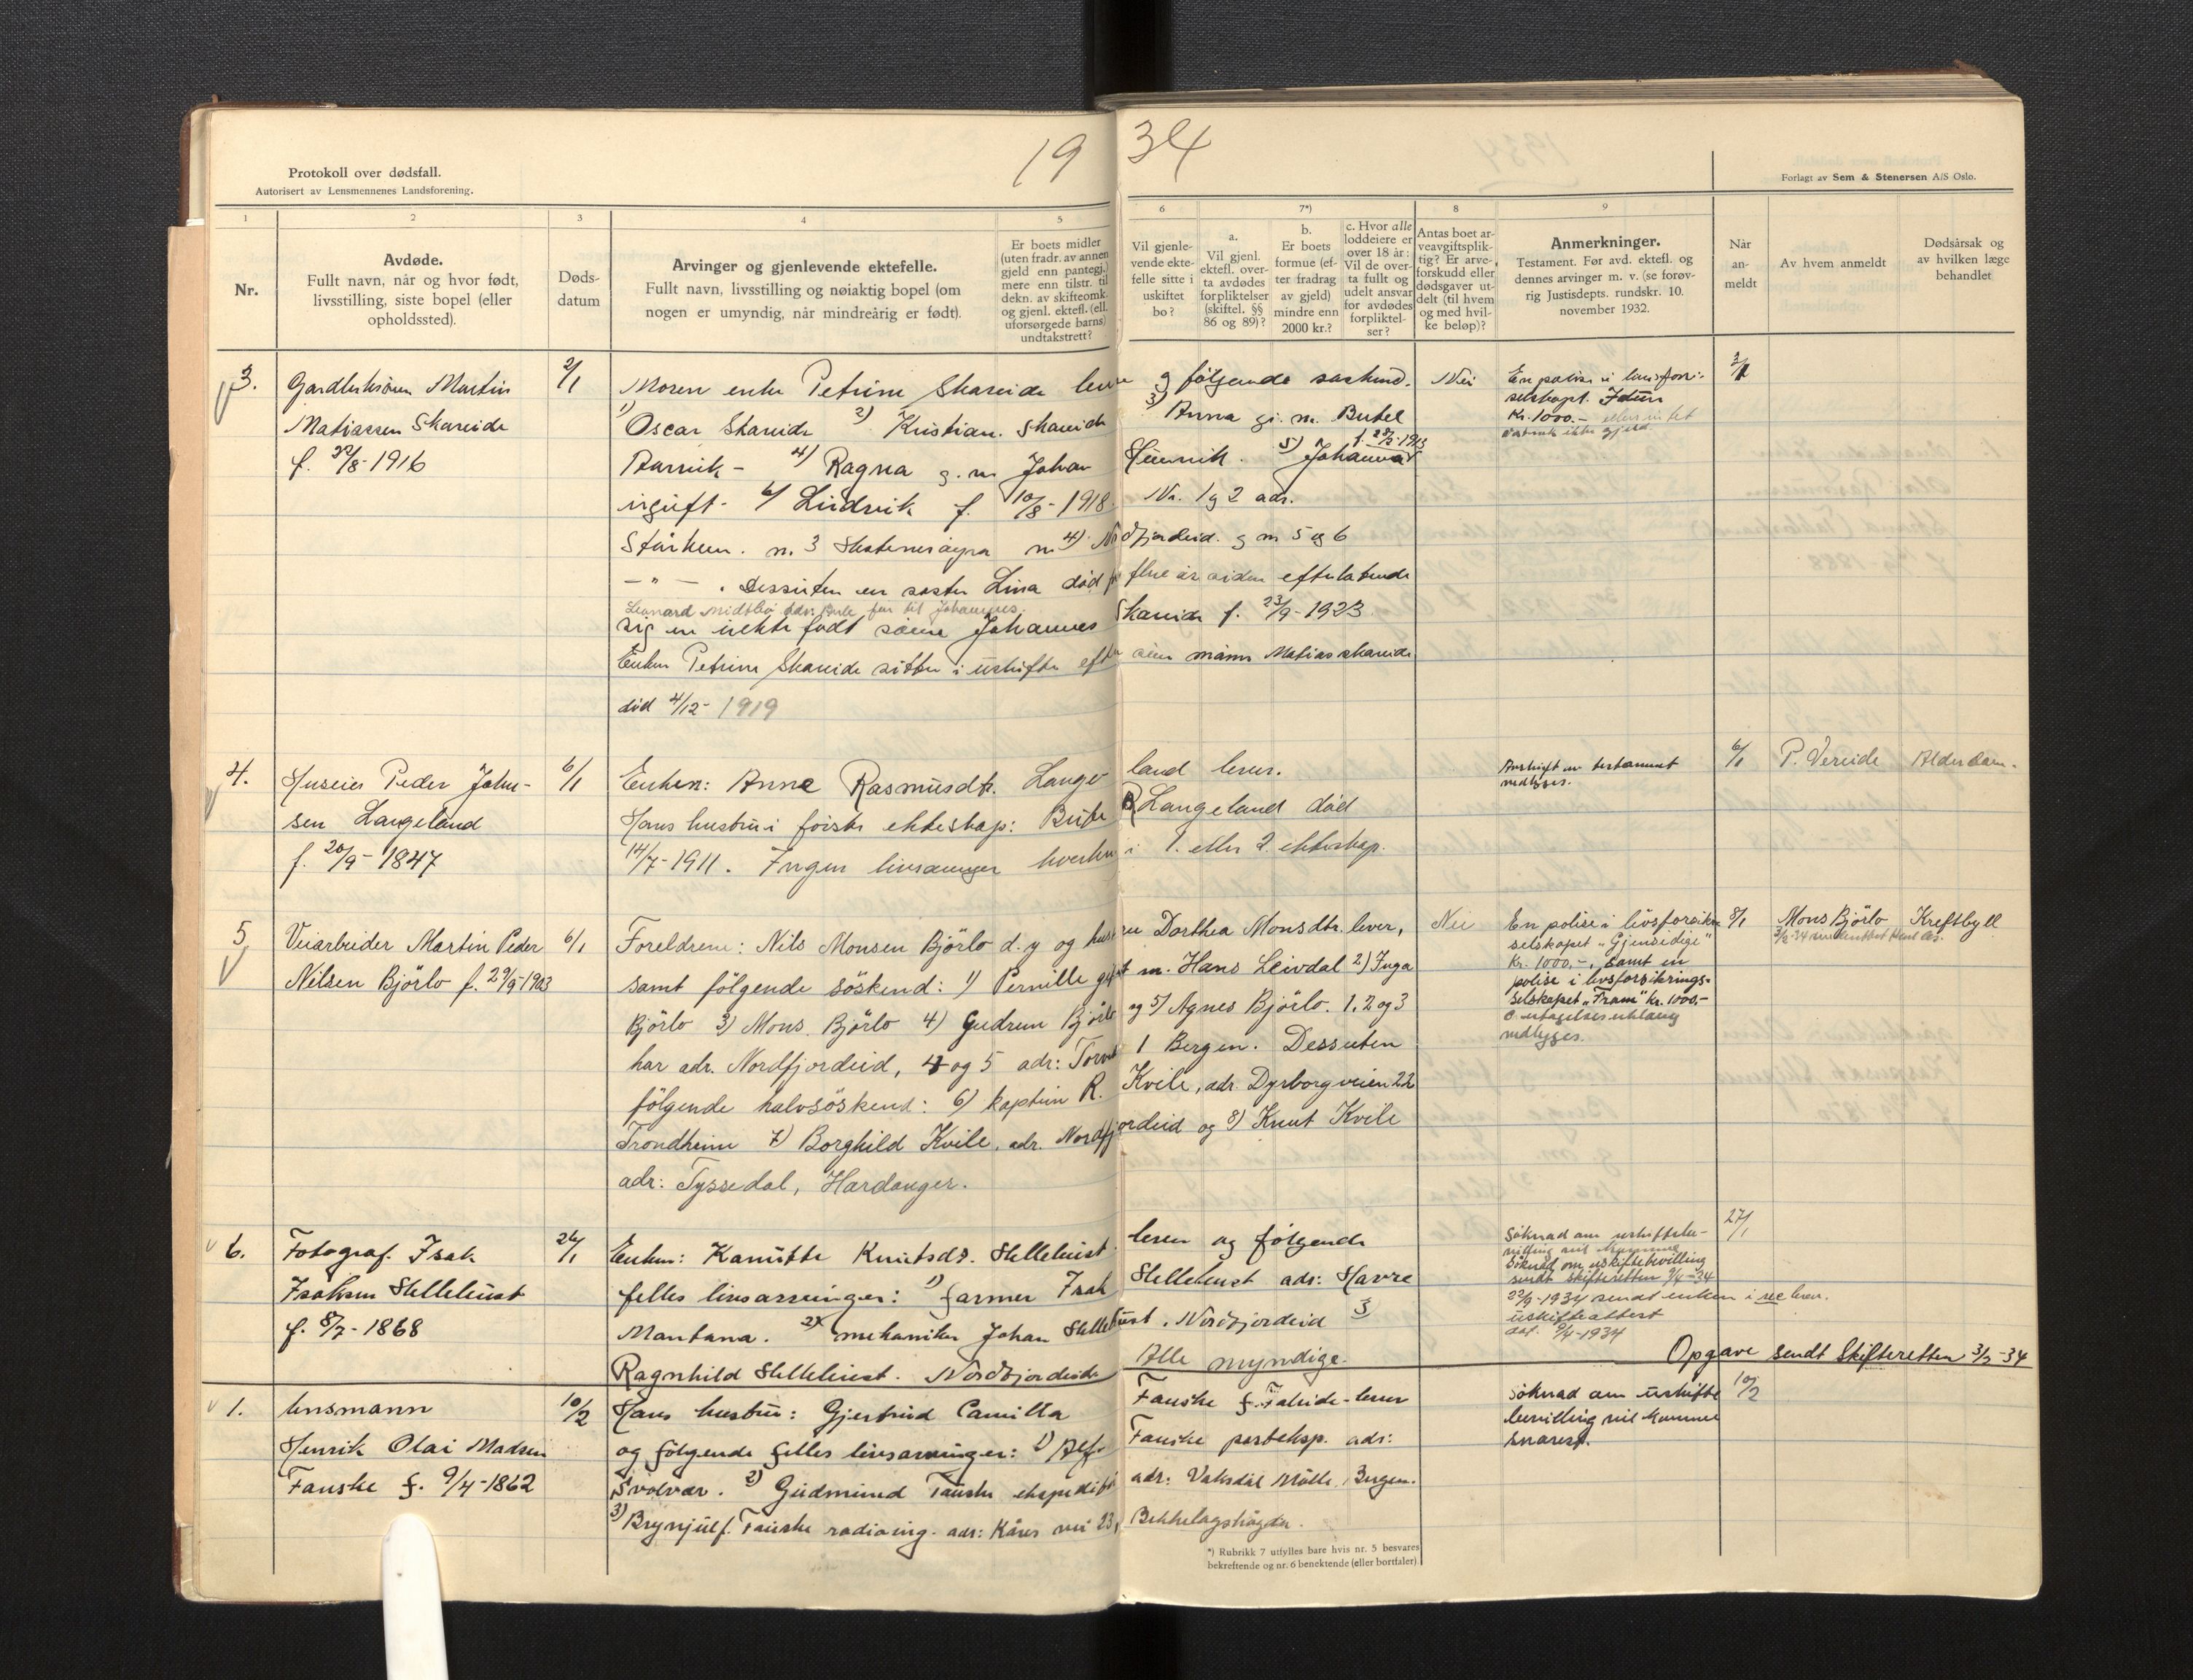 19 34
Protokoll over dødsfall.
Autorisert av Lensmennenes Landsforening.
Forlagt av Sem & Stenersen A/S Oslo.
1 2 3 4 5 6 7*) 8 9
Nr.
Avdøde.
Fullt navn, når og hvor født,
livsstilling, siste bopel (eller
opholdssted).
Døds-
datum
Arvinger og gjenlevende ektefelle.
Fullt navn, livsstilling og nøiaktig bopel (om
nogen er umyndig, når mindreårig er født).
Er boets midler
(uten fradr. av annen
gjeld enn pantegj.)
mere enn tilstr. til
dekn. av skifteomk.
og gjenl. ektefl. (ell.
uforsørgede barns)
undtakstrett?
Vil gjenle-
vende ekte-
felle sitte i
uskiftet
bo?
a.
Vil gjenl.
ektefl. over-
ta avdødes
forpliktelser
(skiftel. §§
86 og 89)?
b.
Er boets
formue (ef-
ter fradrag
av gjeld)
mindre enn
2000 kr.?
c. Hvor alle
loddeiere er
over 18 år:
Vil de over-
ta fullt og
udelt ansvar
for avdødes
forpliktel-
ser?
Antas boet ar-
veavgiftsplik-
tig? Er arve-
forskudd eller
dødsgaver ut-
delt (til hvem
og med hvil-
ke beløp)?
Anmerkninger.
Testament. Før avd. ektefl. og
dennes arvinger m. v. (se forøv-
rig Justisdepts. rundskr. 10.
november 1932.
Når
an-
meldt
Av hvem anmeldt
Dødsårsak og
av hvilken læge
behandlet
3.
Martin
Matiassen Skareide
f. 22/8-1916
2/1
Moren enke Petrine Skareide lever og følgende søskend.
1) Oscar Skareide 2) Kristian Skareide 3) Anna gi. m.
4) Ragna g. m. Johan 5) Johanna
ugift - 6) Ludvik f. 10/8-1918. Nr. 1 og 2 adr.
n. 3 n. 4) Nordfjordeid. og n. 5 og 6
- " - . Dessuten en søster Lina død for flere år siden efterlatende
sig en uekte født sønn Johannes Skareide f. 23/9-1923
Enken Petrine Skareide sitter i uskifte efter sin mann Matias Skareide
død 4/12-1919
Nei
En polise i livsforsi-
selskapet Idun
Kr. 1000.-
4.
Huseier Peder Johan-
sen Langeland
f. 20/9-1847
6/1
Enken: Anne Rasmusdtr. Langeland lever.
Hans hustru i første ekteskap: Langeland død
14/7-1911. Ingen livsarvinger hverken i 1. eller 2. ekteskap.
Avskrift av testament
vedlegges.
6/1
P. Vereide
Alderdom.
5
Veiarbeider Martin Peder
Nilsen Bjørlo f. 29/9-1903
6/1
Foreldrene: Nils Monsen Bjørlo d.y og hustru Dorthea Monsdtr. lever,
samt følgende söskend: 1) Pernille gift m. Hans Leivdal 2) Inga
Bjørlo 3) Mons Bjørlo 4) Gudrun Bjørlo og 5) Agnes Bjørlo. 1, 2 og 3
har adr. Nordfjordeid, 4 og 5 adr: Bergen. Dessuten
følgende halvsöskend: 6) kaptein R. Kvile, adr. Dyrborgveien 22
Trondheim 7) Borghild Kvile, adr. Nordfjordeid og 8) Knut Kvile
adr: Tyssedal, Hardanger.
Nei
En polise i livsforsikr.
selskapet "Gjensidige"
Kr. 1000.-, samt en
polise i livsforsikrings-
selskapet "Fram" kr. 1000.-
vedlegges.
8/1
Mons Bjørlo
Kreftbyll
6.
Fotograf Isak
Isaksen Stellehust
f. 8/7-1868
26/1
Enken: Kanutte Knutsdr. Stellehust lever og følgende
felles livsarvinger: 1) farmer Isak Stellehust adr: Havre
Montana. 2) mekaniker Johan Stellehust, Nordfjordeid 3
Ragnhild Stellehust. Nordfjordeid. Alle myndige.
Søknad om uskiftebe-
villing vil
Søknad om uskiftebevilling
sendt skifteretten 9/4-34
22/9-1934 sendt enken i rec brev.
uskifteattest
dat. 9/4-1934
27/1
Opgave sendt Skifteretten 3/2-34
1.
lensmann
Henrik Olai Madsen
Fauske f. 9/4-1862
10/2
Hans hustru: Gjertrud Camilla Fauske f. - lever
og følgende felles livsarvinger: 1) Alf Fauske posteksp. adr:
Svolvær. 2) Gudmund Fauske ekspeditør adr: Vaksdal Mølle, Bergen.
3) Brynjulf Fauske radioing. adr: Kåres vei 23, Bekkelagshøgda.
Søknad om uskifte
bevilling vil komme
snarest.
10/2
*) Rubrikk 7 utfylles bare hvis nr. 5 besvares
bekreftende og nr. 6 benektende (eller bortfaler).